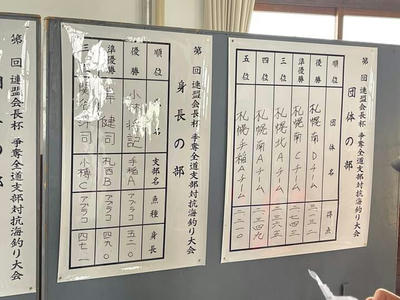 第 回 連盟会長杯 争奪全道支部対抗海釣り大会
団体の部
順位 団体名 得点
優勝 札幌南Dチーム 三一三二
準優勝 札幌南Cチーム 二七四三
三位 札幌北Aチーム 二三六五
四位 札幌南Aチーム 二三四九
五位 札幌手稲Aチーム
第 回 連盟会長杯 争奪全道支部対抗海釣り大会
身長の部
順位 支部名 魚種 身長
優勝 手稲A アブラコ 五二〇
準優勝 健司 札西B アブラコ 四九〇
三 小樽C アブラコ 四七二
第 回 連盟会長杯 争奪全道支部対抗海釣り大会
の部